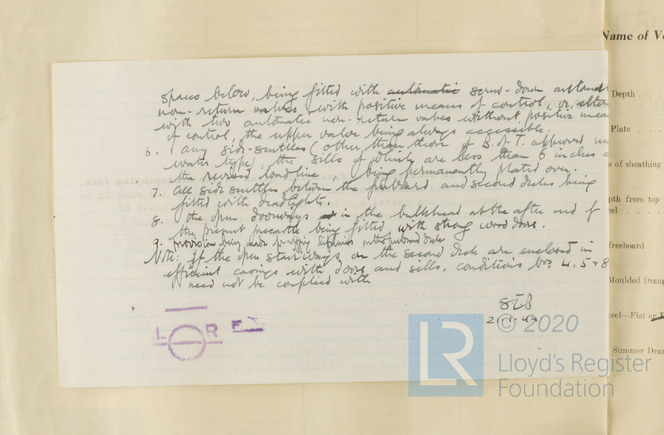 spaces below, being fitted with automatic screw-down automatic
non-return valves with positive means of control, or, altern
with two automatic non-return valves without positive mean
of control, the upper valve being always accessible.
6. any side-scuttles (other than those of B.o.T. approved
water type), the sills of which are less than 6 inches
the revised loadline, being permanently plated over.
7. All side scuttles between the freeboard and second decks being
fitted with deadlights.
8. the open doorways in the bulkhead at the after end of
the present being fitted with strong wood doors.
9. Provision being made for rigging lifelines on the freeboard deck
Note: if the open stairways on the second deck are enclosed in
efficient casings with doors and sills, conditions Nos 4, 5 & 8
need not be complied with
L R F
© 2020
LR
Lloyd's Register
Foundation
Name of V
Depth
Plate
s of sheathing
pth from top
freeboard
Moulded Drau
eel—Flat or
Summer Dra